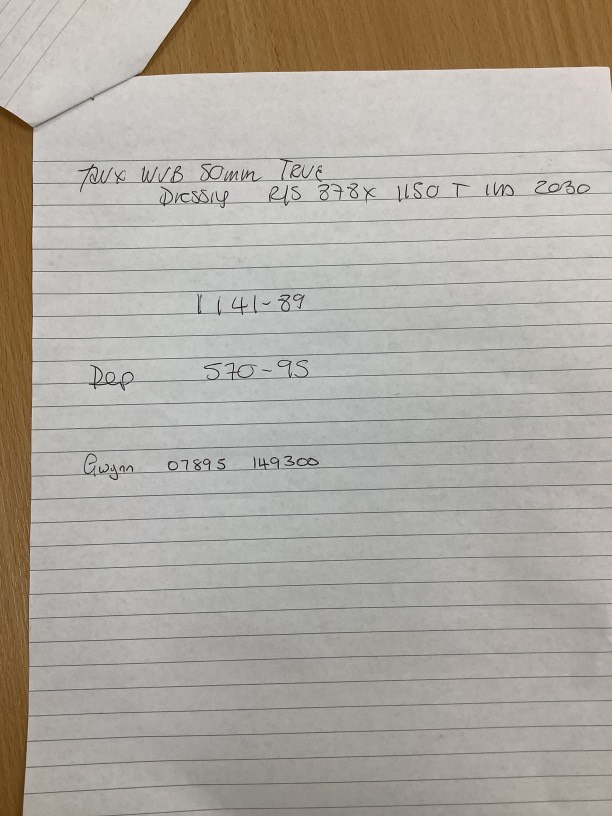 WVB 50mm TRUE
Dressiy R/S 878 x 1150 T 2030
1141-89
Dep 570-95
Gwynn 07895 149300